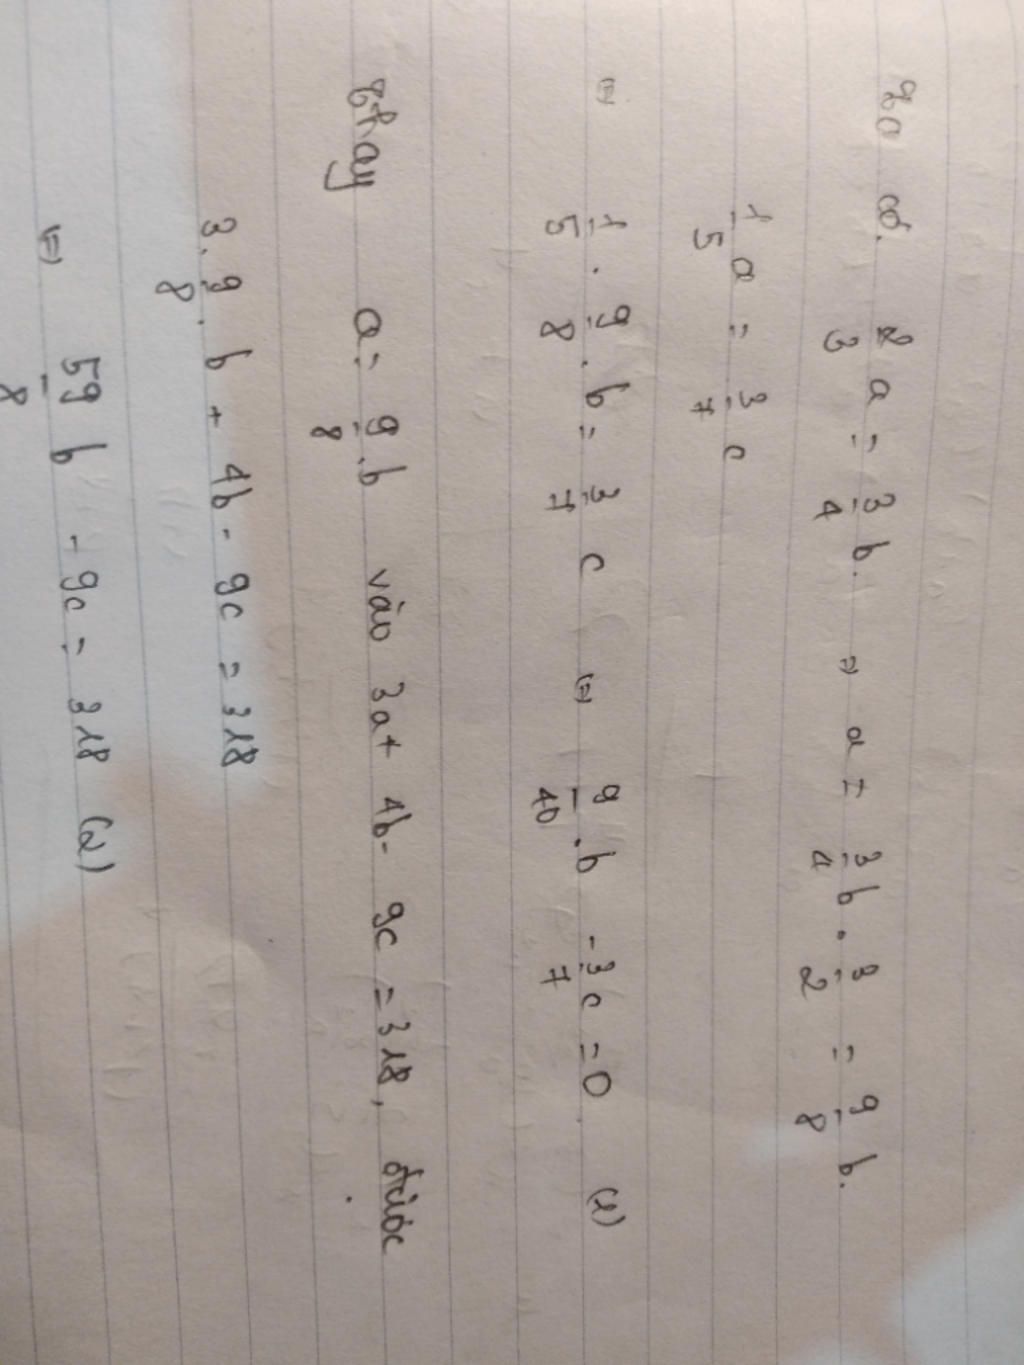 Ta có. 2/3 a = 3/4 b. => a = 3/4 b . 3/2 = 9/8 b.
1/5 a = 3/7 c
(=) 1/5 . 9/8 . b = 3/7 c (=) 9/40 . b - 3/7 c = 0 (1)
Thay a = 9/8 . b vào 3a + 4b - 9c = 318, được
3 . 9/8 . b + 4b - 9c = 318
(=) 59/8 b - 9c = 318 (2)